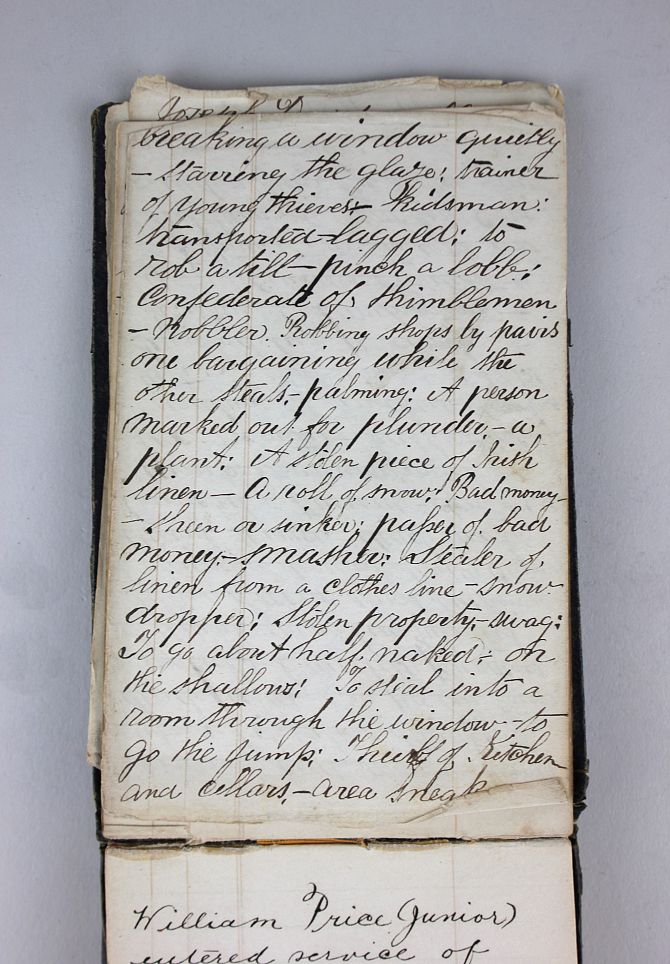 Joseph
breaking a window quietly
- starring the glaze: trainer
of young thieves - Kidsman:
transported - lagged: to
rob a till - pinch a lobb:
Confederate of thimblemen
- Nobbler. Robbing shops by pairs
one bargaining while the
other steals, - palming: A person
marked out for plunder, - a
plant: A stolen piece of Irish
linen - A roll of snow: Bad money -
- Sheen or sinker: passer of bad
money - smasher: Stealer of
linen from a clothes line - snow
dropper: Stolen property, - swag:
To go about half naked, - on
the shallows: To steal into a
room through the window - to
go the jump: Thief of Kitchen
and cellars, - area sneak
William Price (Junior)
entered service of